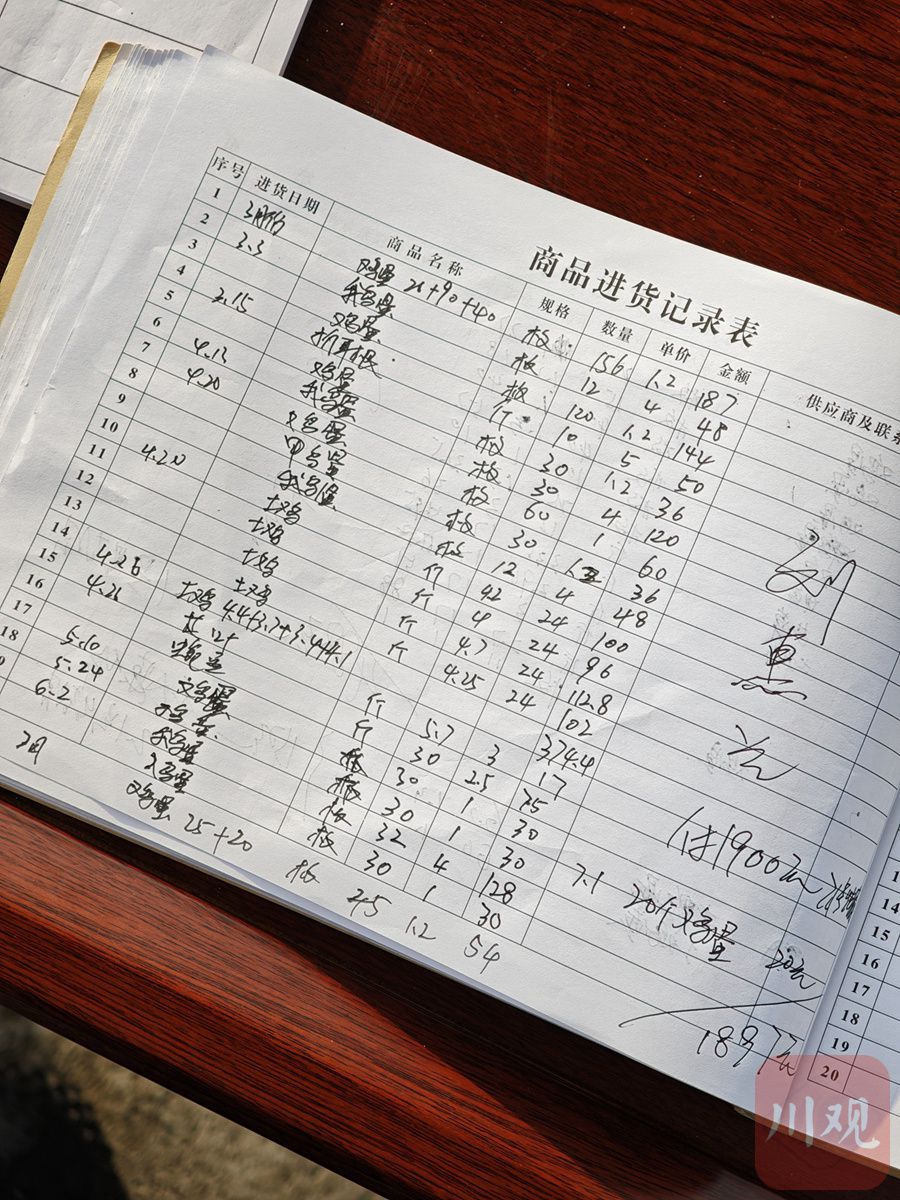 商品进货记录表
序号 进货日期 商品名称 规格 数量 单价 金额 供应商及联系
1 3月份 鸡蛋 +90+40 枚 156 1.2 187
2 3.3 鹅蛋 枚 12 4 48
3 鸡蛋 枚 120 1.2 144
4 折耳根 斤 10 5 50
5 3.15 鸡蛋 枚 30 1.2 36
6 鹅蛋 枚 30 4 120
7 4.13 鸡蛋 枚 60 1 60
8 4.20 鸡蛋 枚 30 1.2 36
9 鹅蛋 枚 12 4 48
10 土鸡 斤 24 100
11 4.20 土鸡 斤 4 24 96
12 土鸡 斤 4.7 24 112.8
13 土鸡 4.25 24 102
14 土鸡 4.4+3.7+3.4+4.1 斤 374.4
15 4.26 斤 5.7 3 17
16 4.26 枚 30 2.5 75
17 鸡蛋 枚 30 1 30
18 5.10 枚 30 1 30
5.24 鹅蛋 枚 32 4 128
6.2 鸡蛋 枚 30 1 30
7月 鸡蛋 25+20 枚 45 1.2 54
刘
惠
1900元
7.1 20个鸡蛋 20元
1897元
14
15
16
17
18
19
20
川观